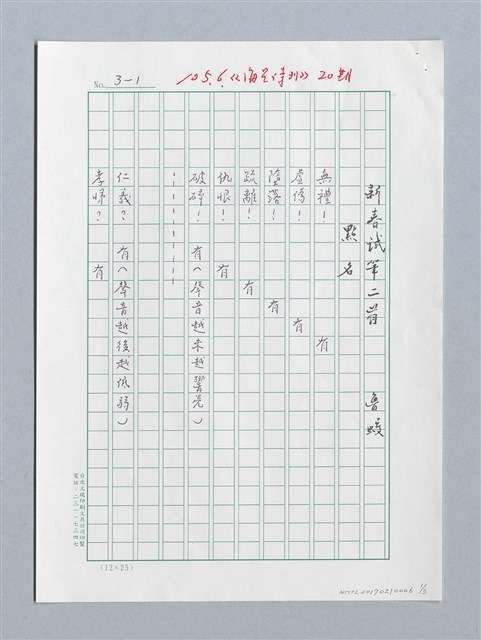 No. 3-1
105.6.《海星詩刊》20期
新春試筆二首 魯蛟
點名
無禮! 有
虛偽! 有
墮落! 有
疏離! 有
仇恨! 有
破碎! 有(聲音越來越響亮)
仁義? 有(聲音越後越低弱)
孝悌? 有
(12×25)
NTTL20170210006 1/3